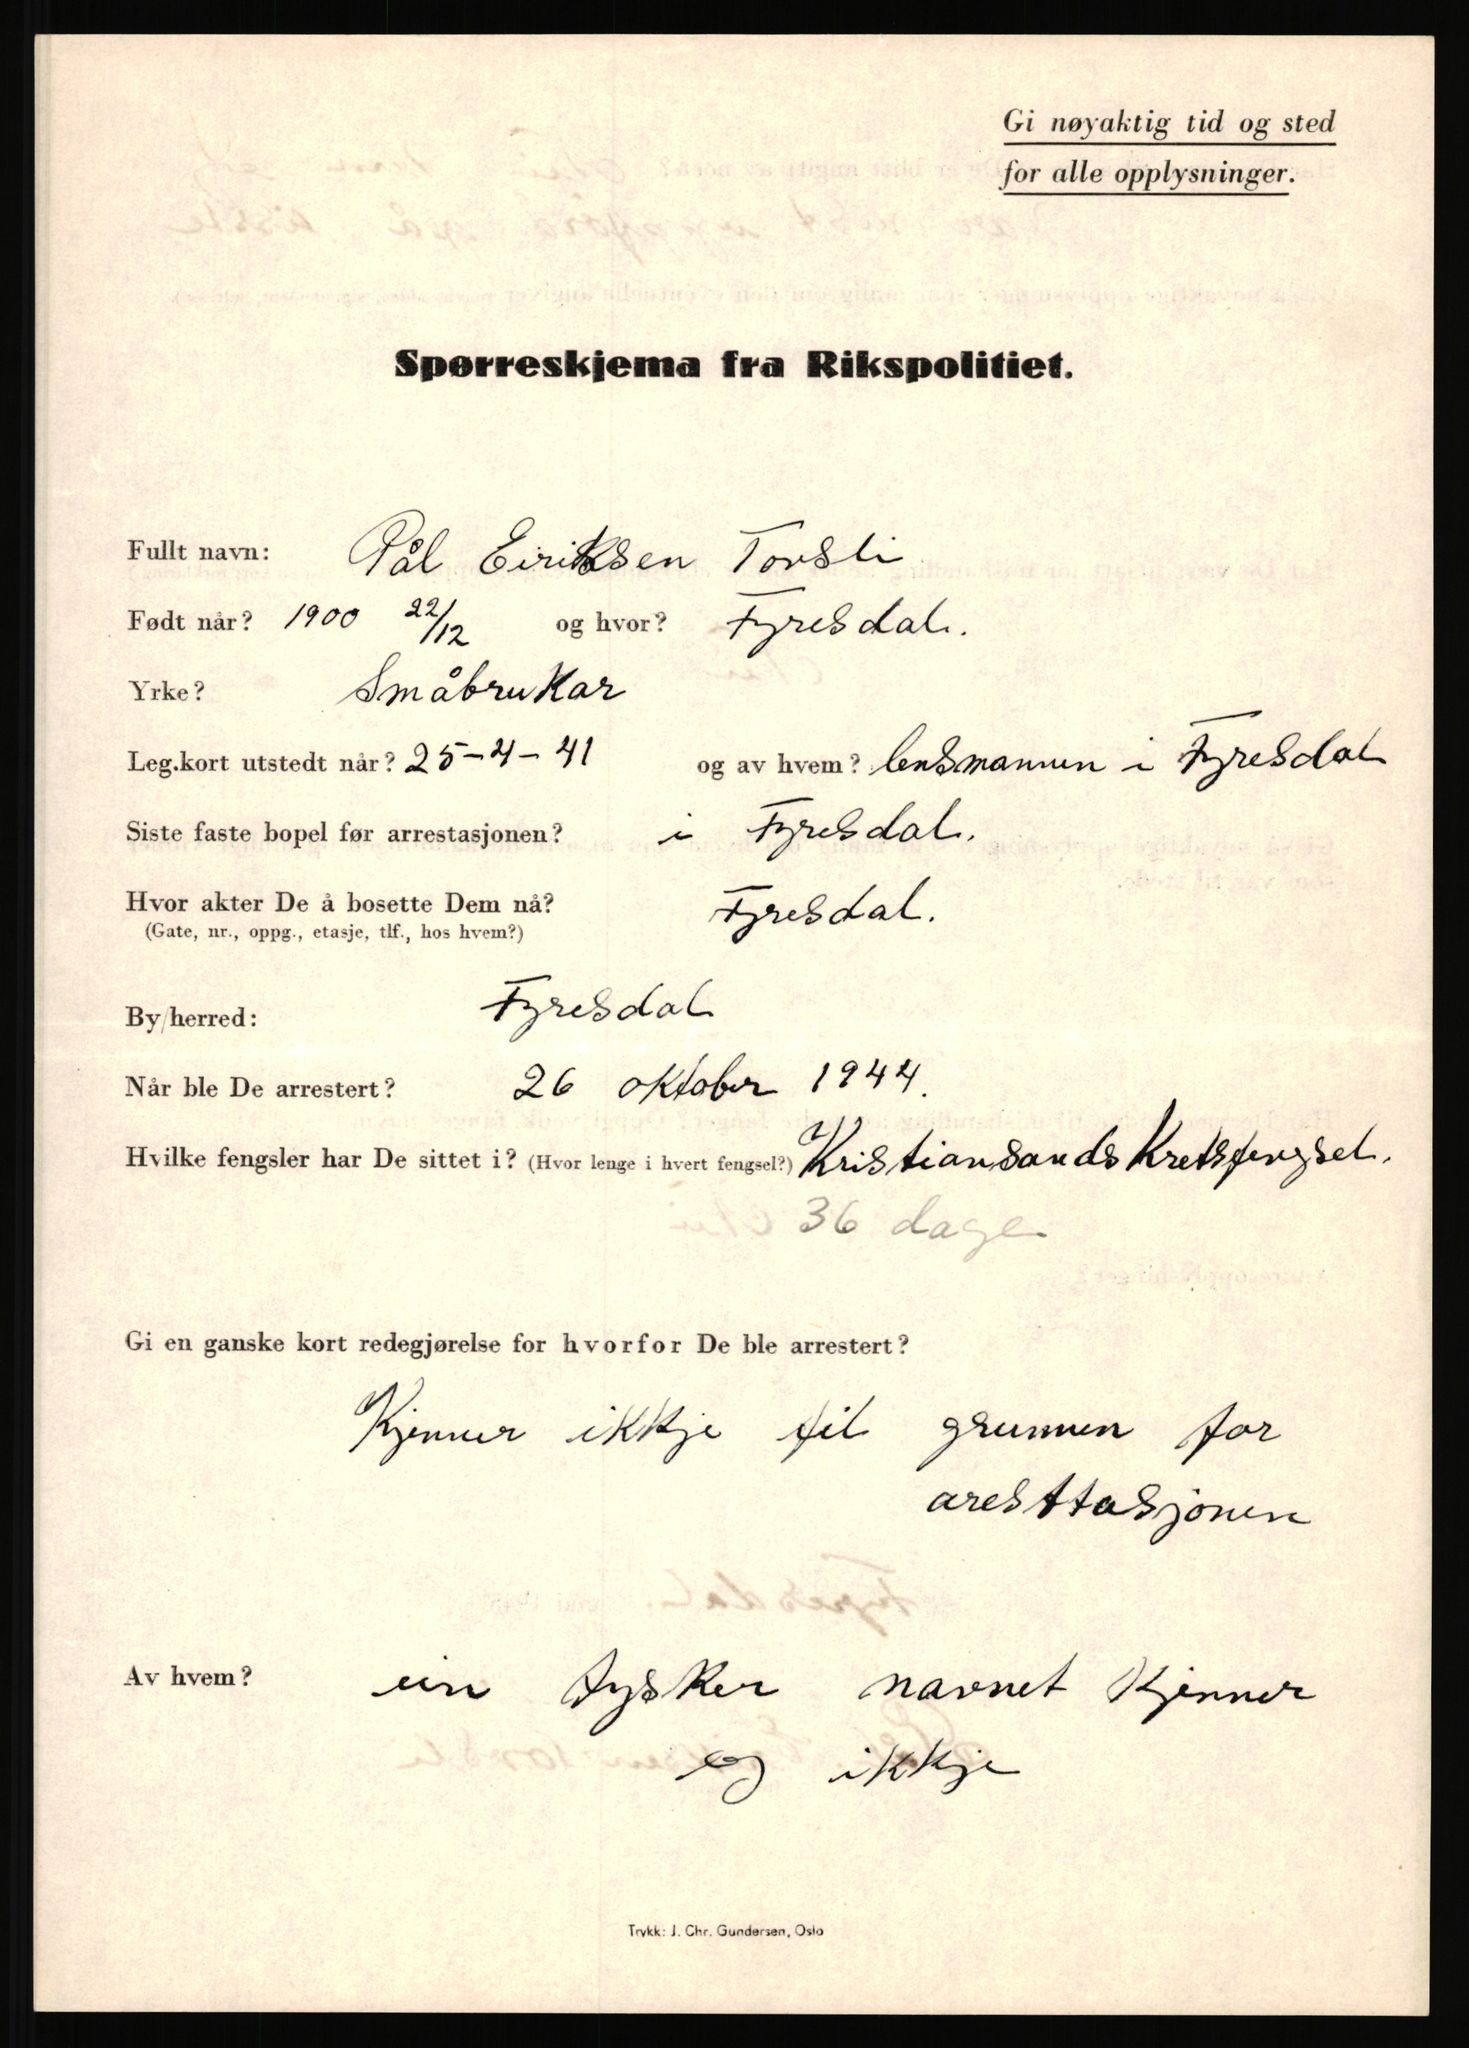 Gi nøyaktig tid og sted
for alle opplysninger.
Spørreskjema fra Rikspolitiet.
Fullt navn: Pål Eiriksen Torsli
Født når? 1900 22/12 og hvor? Fyresdal.
Yrke? Småbrukar
Leg.kort utstedt når? 25-4-41 og av hvem? lensmannen i Fyresdal
Siste faste bopel før arrestasjonen? i Fyresdal.
Hvor akter De å bosette Dem nå? Fyresdal.
(Gate, nr., oppg., etasje, tlf., hos hvem?)
By/herred: Fyresdal
Når ble De arrestert? 26 oktober 1944.
Hvilke fengsler har De sittet i? (Hvor lenge i hvert fengsel?) Kristiansands Kretsfengsel.
36 dage
Gi en ganske kort redegjørelse for hvorfor De ble arrestert?
Kjenner ikkje til grunnen for
aresttasjonen
Av hvem? ein tysker navnet kjenner
eg ikkje
Trykk: J. Chr. Gundersen, Oslo